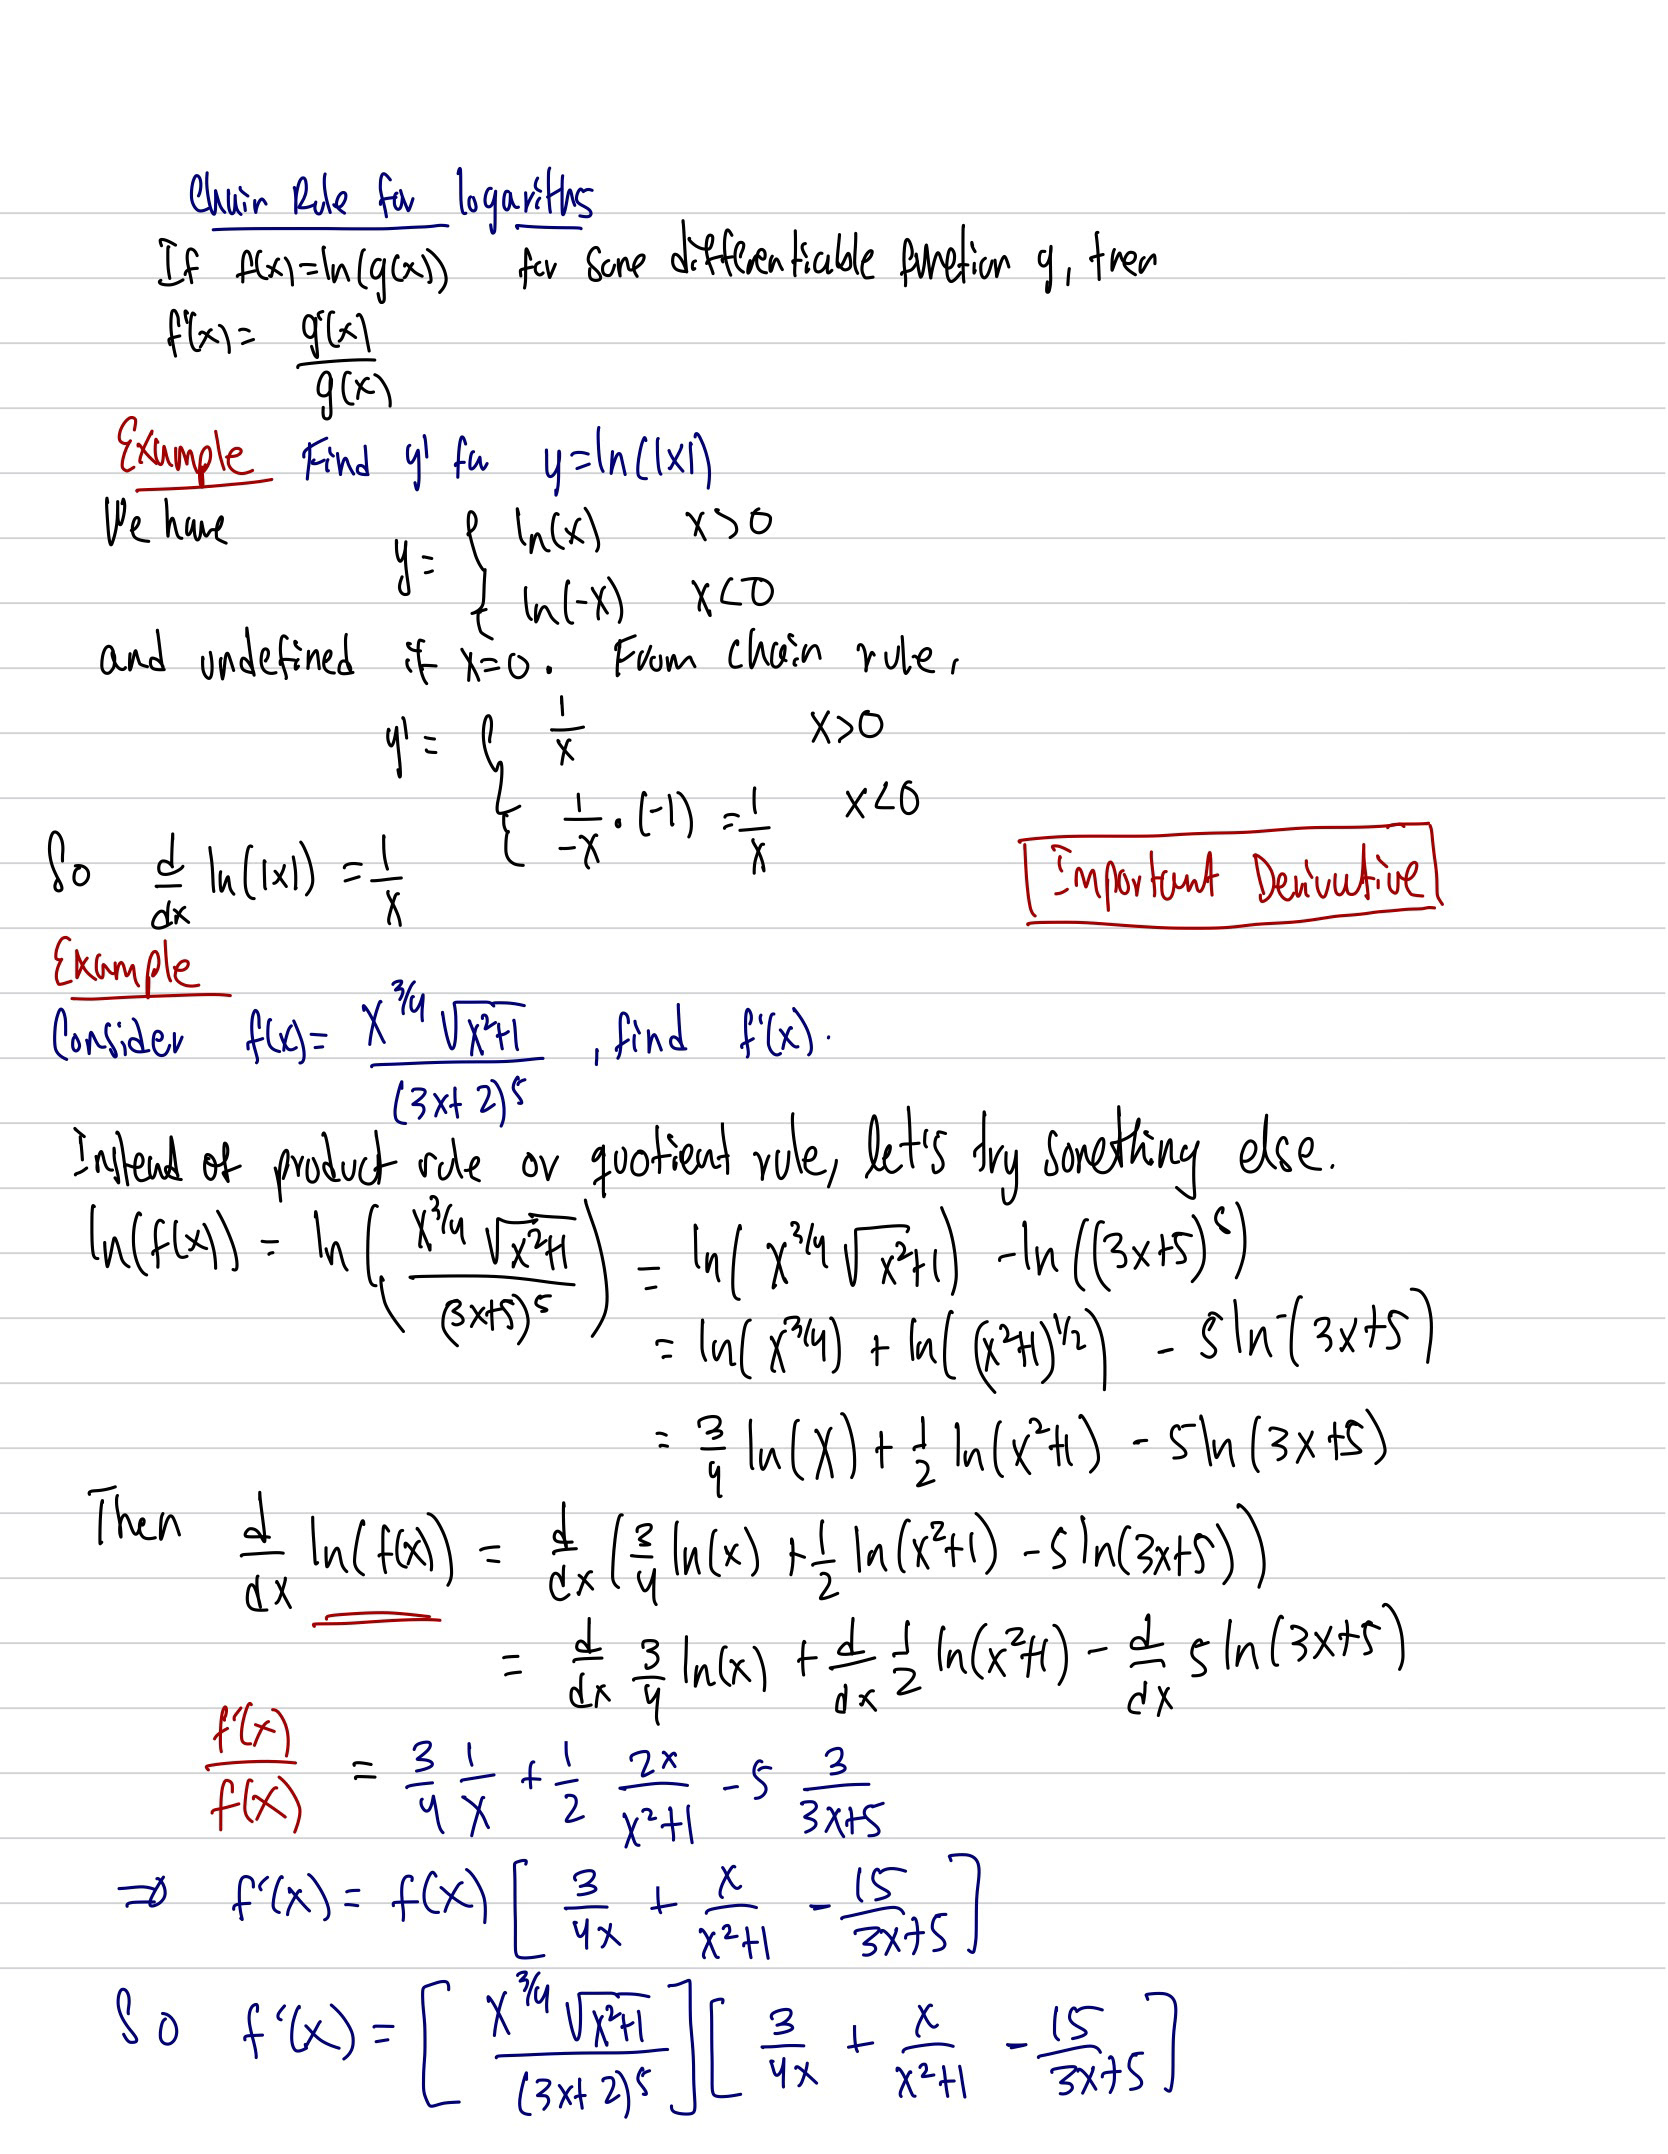 Chain Rule for logariths
If f(x)=ln(g(x)) for some differentiable function g, then
f'(x)= g'(x)/g(x)
Example Find y' for y=ln(|x|)
We have y= { ln(x) x>0
ln(-x) x<0
and undefined if x=0. From chain rule,
y' = { 1/x x>0
1/-x · (-1) = 1/x x<0
So d/dx ln(|x|) = 1/x
Important Derivative
Example
Consider f(x)= x^3/4 √(x²+1) / (3x+2)^5 , find f'(x).
Instead of product rule or quotient rule, let's try something else.
ln(f(x)) = ln( x^3/4 √(x²+1) / (3x+5)^5 ) = ln( x^3/4 √(x²+1) ) - ln((3x+5)^5)
= ln( x^3/4 ) + ln( (x²+1)^1/2 ) - 5 ln (3x+5)
= 3/4 ln(x) + 1/2 ln(x²+1) - 5 ln (3x+5)
Then d/dx ln(f(x)) = d/dx ( 3/4 ln(x) + 1/2 ln(x²+1) - 5 ln(3x+5) )
= d/dx 3/4 ln(x) + d/dx 1/2 ln(x²+1) - d/dx 5 ln(3x+5)
f'(x)/f(x) = 3/4 1/x + 1/2 2x/(x²+1) - 5 3/(3x+5)
⇒ f'(x) = f(x) [ 3/4x + x/(x²+1) - 15/(3x+5) ]
So f'(x) = [ x^3/4 √(x²+1) / (3x+2)^5 ] [ 3/4x + x/(x²+1) - 15/(3x+5) ]